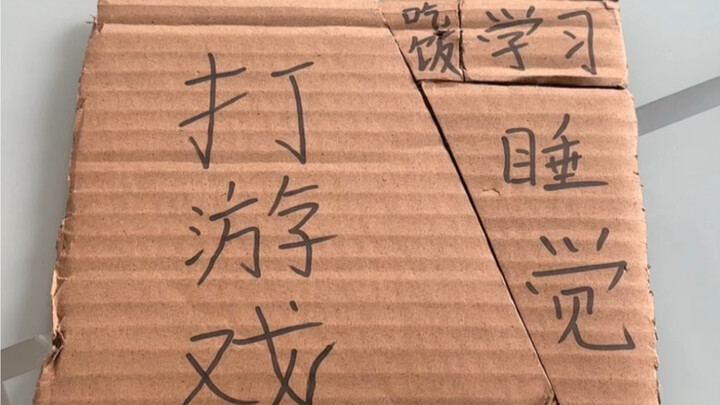 打游戏
吃饭
学习
睡觉